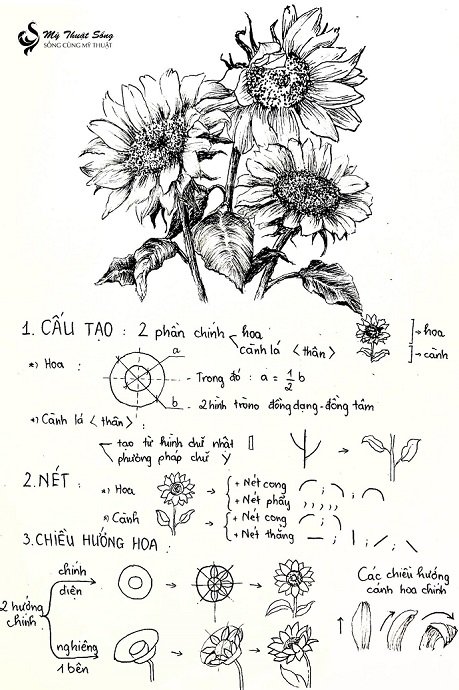 Mỹ Thuật Sống
SỐNG CÙNG MỸ THUẬT
1. CẤU TẠO : 2 phần chính
hoa
cành lá <thân>
→ hoa
→ cành
*) Hoa :
a
b
- Trong đó : a = 1/2 b
- 2 hình tròno đồng dạng - đồng tâm
*) Cành lá <thân> :
tạo từ hình chữ nhật
phương pháp chữ Y
2. NÉT :
*) Hoa → + Nét cong ;
+ Nét phẩy
*) Cành → + Nét cong ;
+ Nét thẳng ;
3. CHIỀU HƯỚNG HOA :
2 hướng chính
chính diện
nghiêng 1 bên
Các chiều hướng
cánh hoa chính